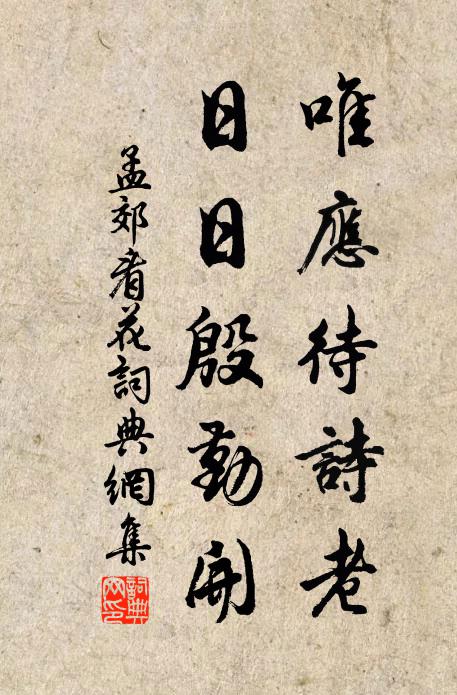 唯應待詩老
日日殷勤開
孟郊看花詞典網集
詞典網印